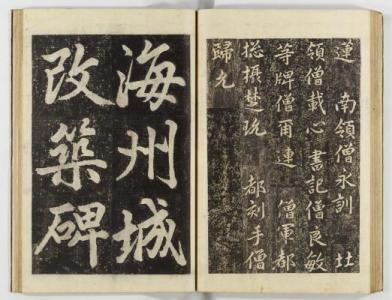 蓮　南領僧永訓　社
領僧載心　書記僧良敏
等牌僧爾連　僧軍都
揔攝楚玩　都刻手僧
歸允
海州城
改築碑